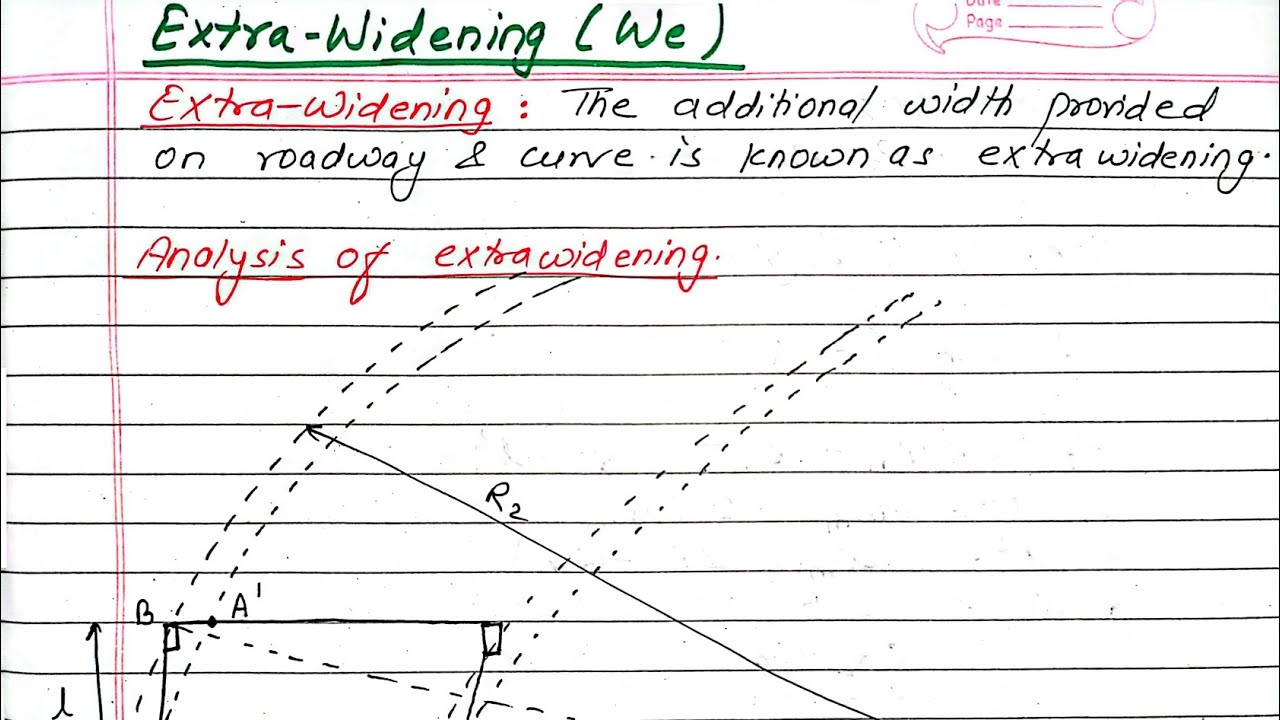 Date
Page
Extra-Widening (We)
Extra-Widening : The additional width provided
on roadway & curve. is known as extra widening.
Analysis of extrawidening.
R2
B A'
l